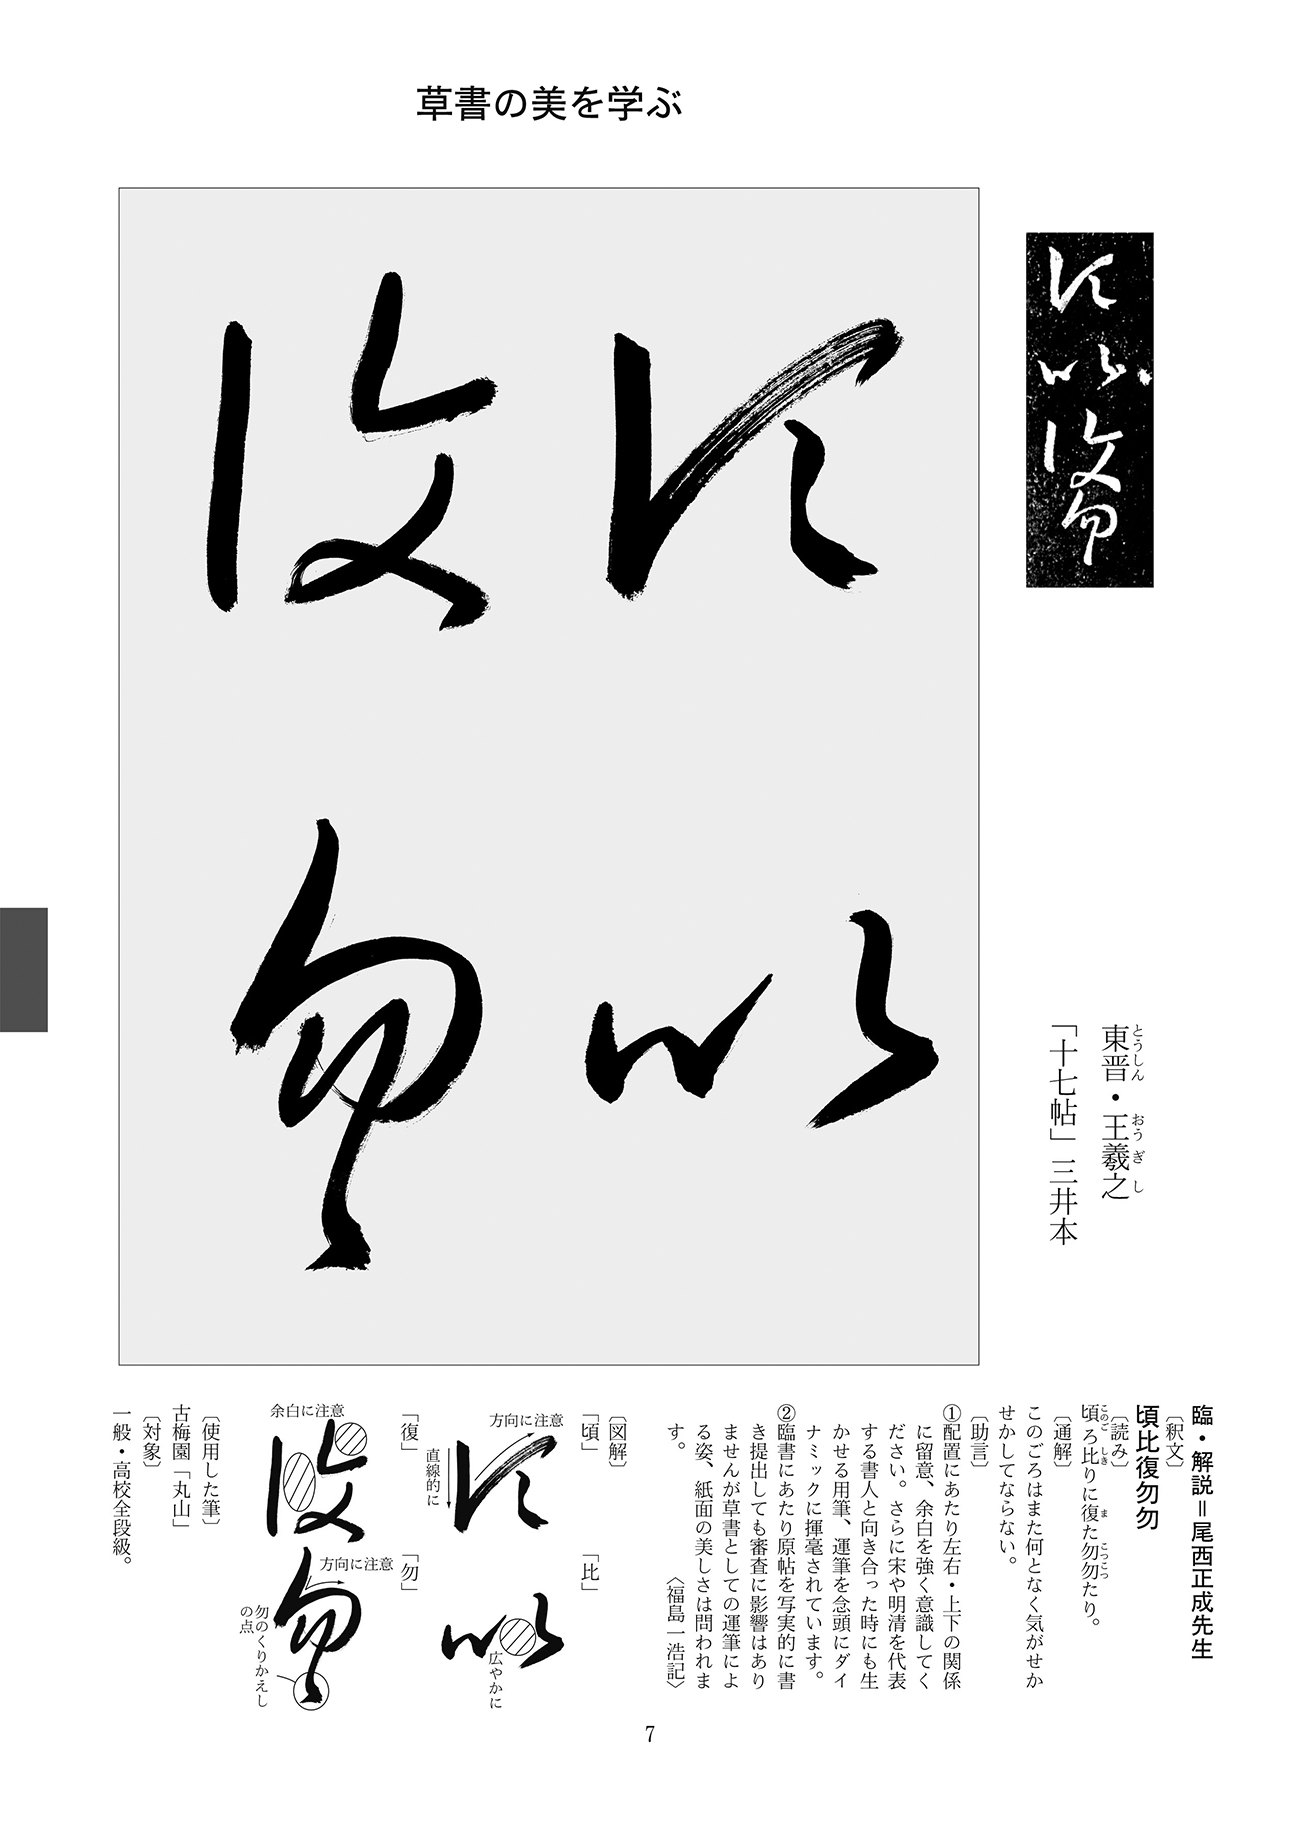 草書の美を学ぶ
頃比復勿
頃比
復勿
東晋・王羲之
とうしん おうぎし
「十七帖」三井本
臨・解説＝尾西正成先生
〔釈文〕
頃比復勿勿
〔読み〕
頃ろ比りに復た勿勿たり。
このご しき ま こつこつ
〔通解〕
このごろはまた何となく気がせか
せかしてならない。
〔助言〕
①配置にあたり左右・上下の関係
に留意、余白を強く意識してく
ださい。さらに宋や明清を代表
する書人と向き合った時にも生
かせる用筆、運筆を念頭にダイ
ナミックに揮毫されています。
②臨書にあたり原帖を写実的に書
き提出しても審査に影響はあり
ませんが草書としての運筆によ
る姿、紙面の美しさは問われま
す。
〈福島一浩記〉
〔図解〕
「頃」
方向に注意
直線的に
頃
「比」
比
広やかに
「復」
余白に注意
復
「勿」
方向に注意
勿
勿のくりかえし
の点
〔使用した筆〕
古梅園「丸山」
〔対象〕
一般・高校全段級。
7